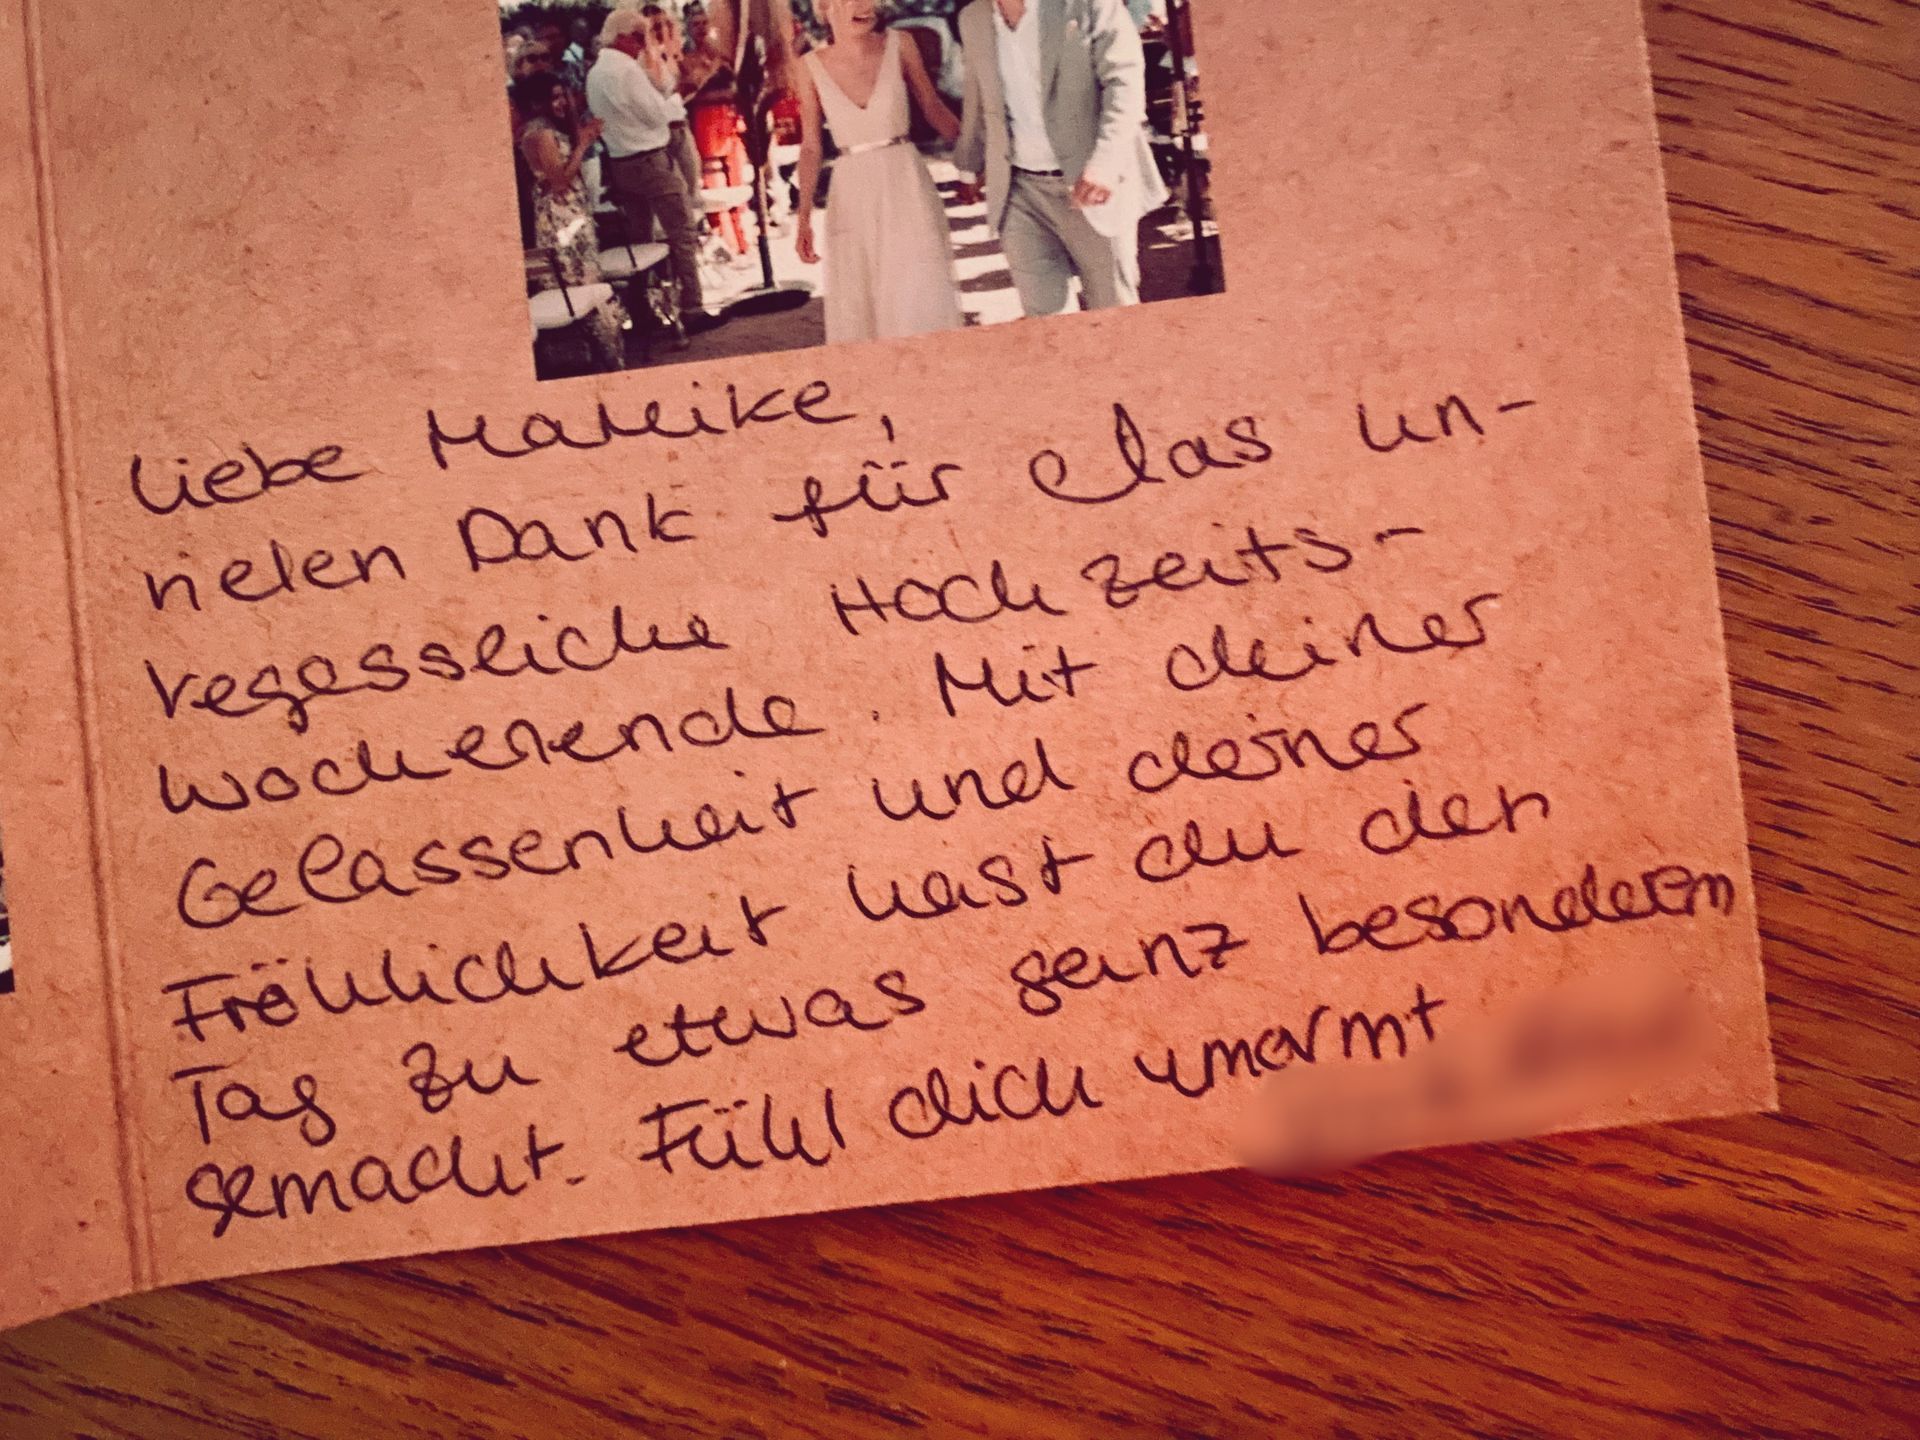 Liebe Mareike,
vielen Dank für das un-
vegessliche Hochzeits-
wochenende. Mit deiner
Gelassenheit und deiner
Fröhlichkeit hast du den
Tag zu etwas ganz besonderem
gemacht. Fühl dich umarmt